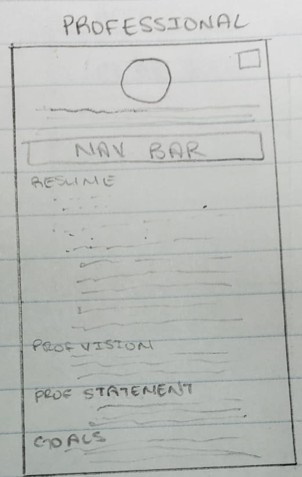 PROFESSIONAL
NAV BAR
RESUME
PROF VISION
PROF STATEMENT
GOALS